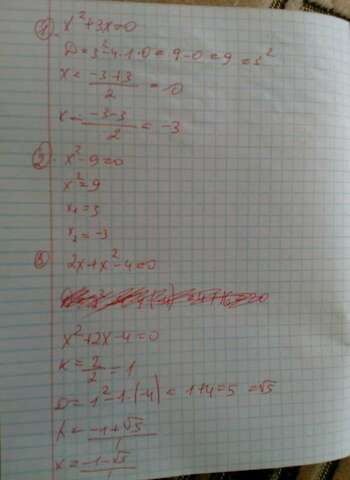 ① x²+3x=0
D=3²-4·1·0=9-0=9=3²
x=\frac{-3+3}{2}=0
x=\frac{-3-3}{2}=-3
② x²-9=0
x²=9
x₁=3
x₂=-3
③ 2x+x²-4=0
x²+2x-4=0
K=\frac{2}{2}=1
D=1²-1·(-4)=1+4=5=√5
x=\frac{-1+√5}{1}
x=\frac{-1-√5}{1}